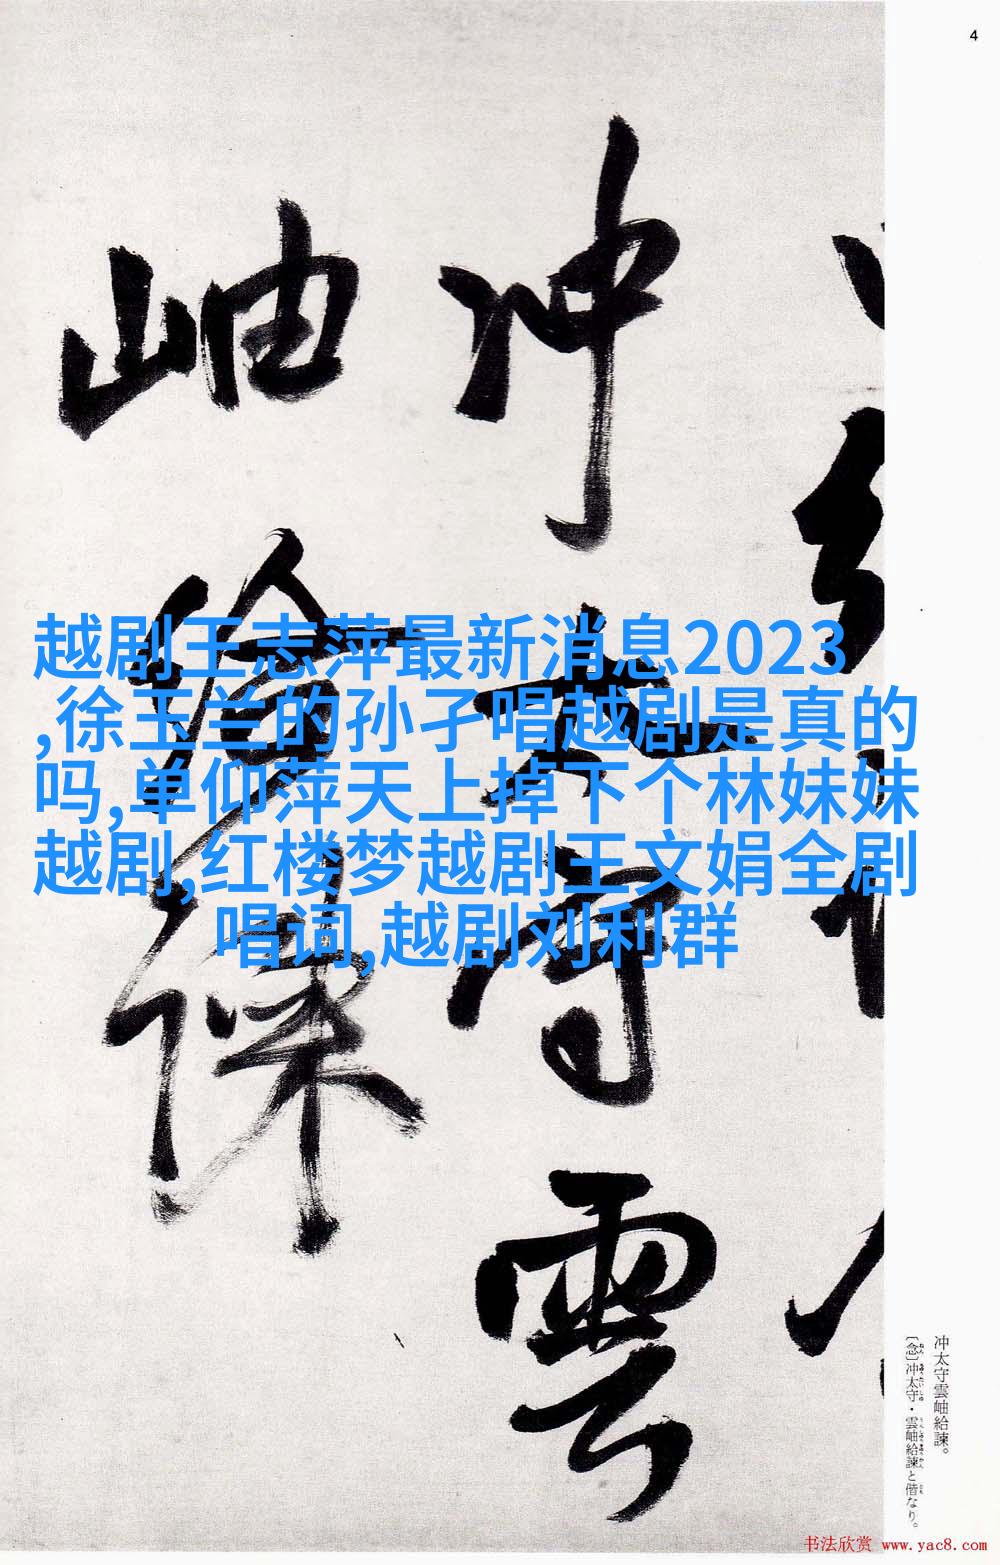 4
冲太守雲
岫給諫
越剧王志萍最新消息2023
,徐玉兰的孙子唱越剧是真的
吗,单仰萍天上掉下个林妹妹
越剧,红楼梦越剧王文娟全剧
唱词,越剧刘利群
冲太守雲岫給諫。
〔念〕冲太守・雲岫給諫と偕なり。
书法欣赏 www.yac8.com